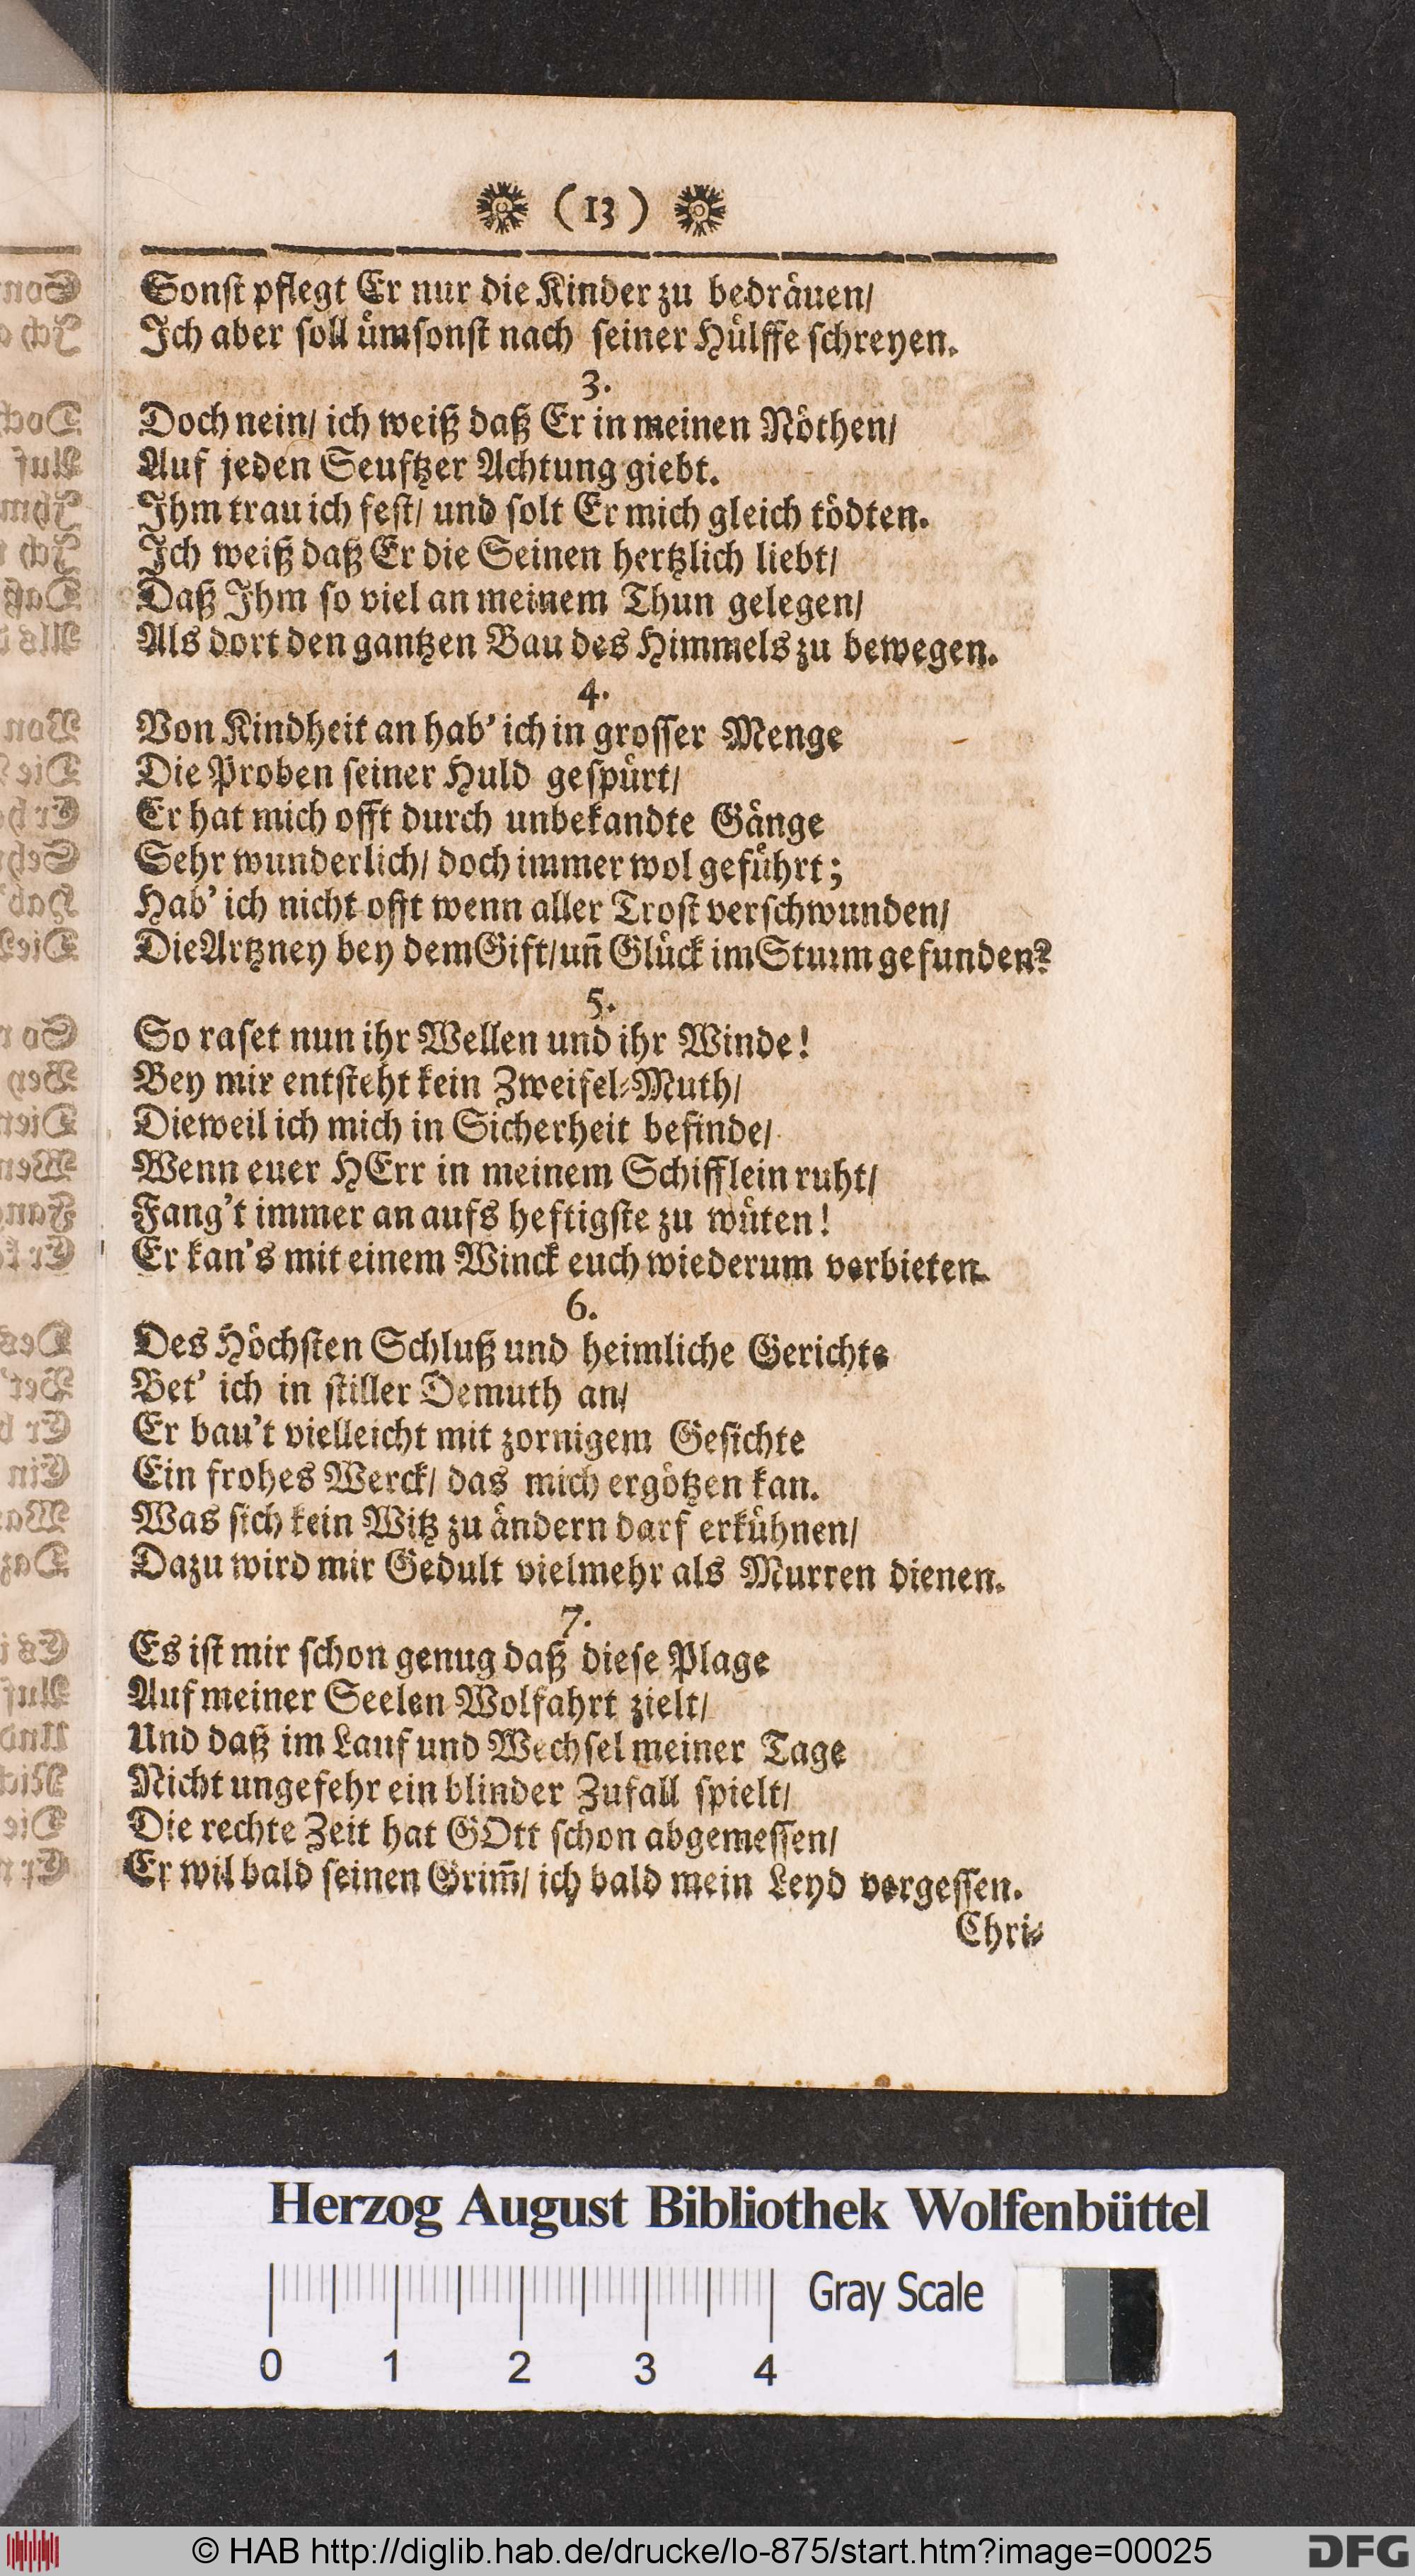 (13)
Sonst pflegt Er nur die Kinder zu bedräuen/
Ich aber soll ümsonst nach seiner Hülffe schreyen.
3.
Doch nein/ ich weiß daß Er in meinen Nöthen/
Auf jeden Seuftzer Achtung giebt.
Ihm trau ich fest/ und solt Er mich gleich tödten.
Ich weiß daß Er die Seinen hertzlich liebt/
Daß Ihm so viel an meinem Thun gelegen/
Als dort den gantzen Bau des Himmels zu bewegen.
4.
Von Kindheit an hab' ich in grosser Menge
Die Proben seiner Huld gespürt/
Er hat mich offt durch unbekandte Gänge
Sehr wunderlich/ doch immer wol geführt;
Hab' ich nicht offt wenn aller Trost verschwunden/
Die Artzney bey dem Gift/ un̄ Glück im Sturm gefunden?
5.
So raset nun ihr Wellen und ihr Winde!
Bey mir entsteht kein Zweifel-Muth/
Dieweil ich mich in Sicherheit befinde/
Wenn euer HErr in meinem Schifflein ruht/
Fang't immer an aufs heftigste zu wüten!
Er kan's mit einem Winck euch wiederum verbieten.
6.
Des Höchsten Schluß und heimliche Gerichte
Bet' ich in stiller Demuth an/
Er bau't vielleicht mit zornigem Gesichte
Ein frohes Werck/ das mich ergötzen kan.
Was sich kein Witz zu ändern darf erkühnen/
Dazu wird mir Gedult vielmehr als Murren dienen.
7.
Es ist mir schon genug daß diese Plage
Auf meiner Seelen Wolfahrt zielt/
Und daß im Lauf und Wechsel meiner Tage
Nicht ungefehr ein blinder Zufall spielt/
Die rechte Zeit hat GOtt schon abgemessen/
Er wil bald seinen Grim̄/ ich bald mein Leyd vergessen.
Chri-
Herzog August Bibliothek Wolfenbüttel
Gray Scale
0 1 2 3 4
© HAB http://diglib.hab.de/drucke/lo-875/start.htm?image=00025
DFG